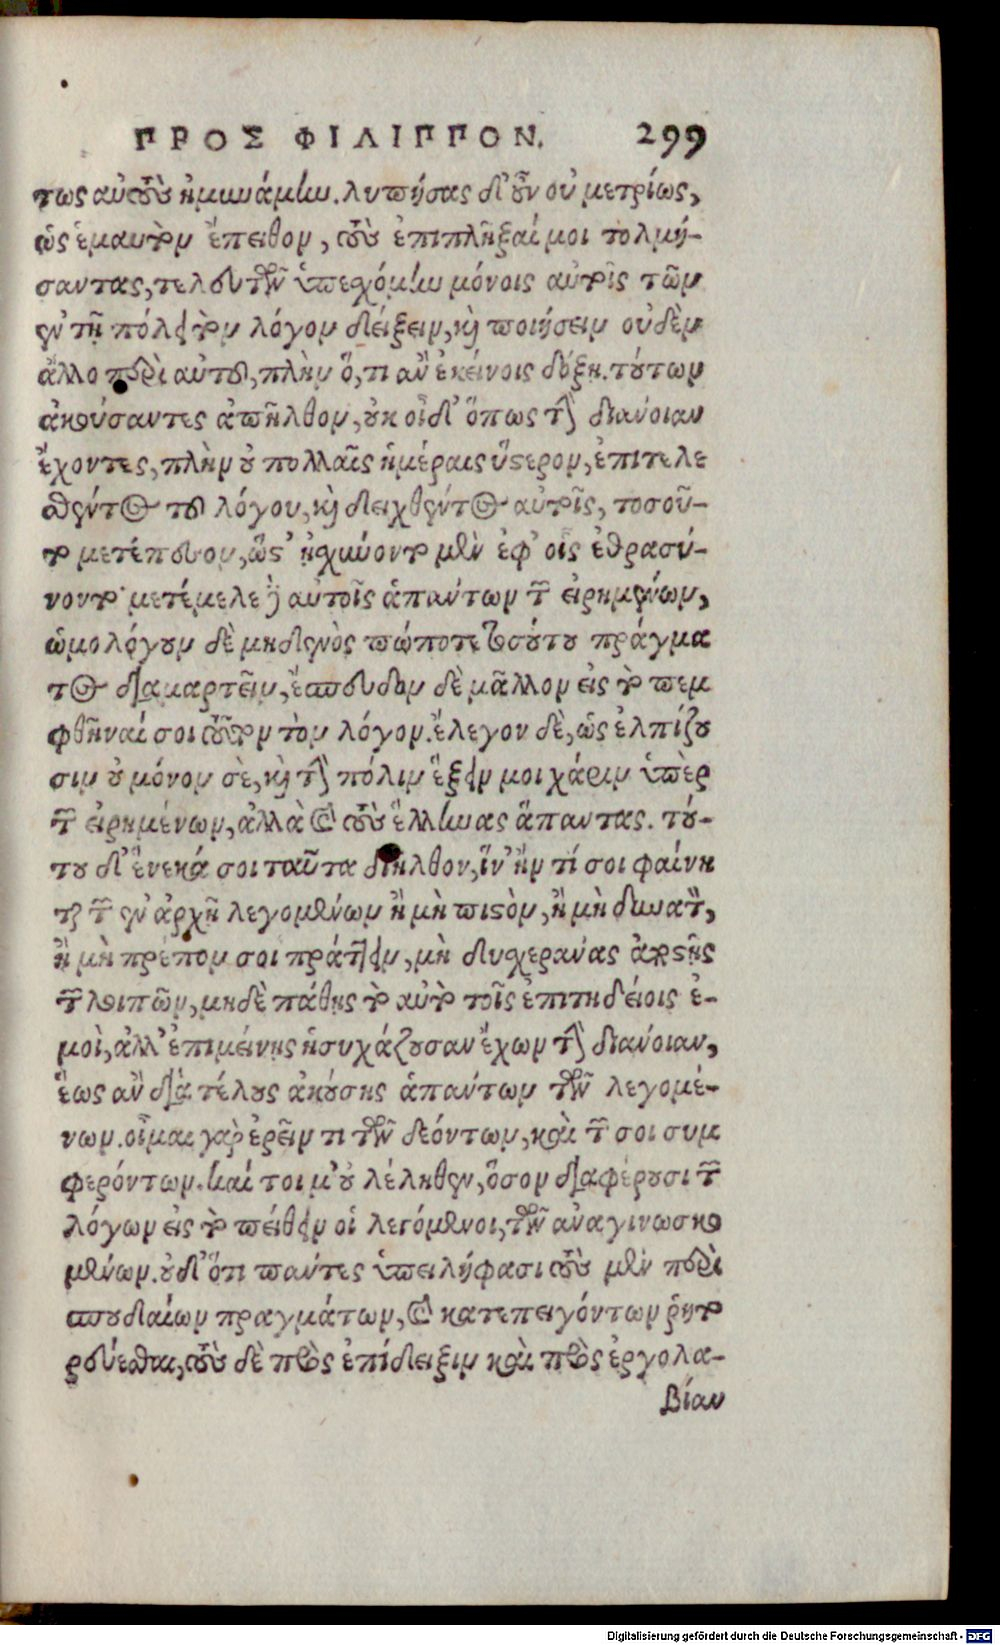 ΠΡΟΣ ΦΙΛΙΠΠΟΝ. 299
τως αὐτοὺς ἠμυνάμην. λυπήσας δ' οὖν οὐ μετρίως,
ὡς ἐμαυτὸν ἔπειθον, τοὺς ἐπιπλῆξαί μοι τολμή-
σαντας, τελευτῶν ὑπεχόμην μόνοις αὐτοῖς τῶν
ἐν τῇ πόλει τὸν λόγον δείξειν, καὶ ποιήσειν οὐδὲν
ἄλλο περὶ αὐτοῦ, πλὴν ὅ, τι ἂν ἐκείνοις δόξῃ. τούτων
ἀκούσαντες ἀπῆλθον, οὐκ οἶδ' ὅπως τὴν διάνοιαν
ἔχοντες, πλὴν οὐ πολλαῖς ἡμέραις ὕστερον, ἐπιτελε
σθέντος τοῦ λόγου, καὶ δειχθέντος αὐτοῖς, τοσοῦ-
το μετέπεσον, ὥστ' ᾐσχύνοντο μὲν ἐφ' οἷς ἐθρασύ-
νοντο· μετέμελε δὲ αὐτοῖς ἁπάντων τῶν εἰρημένων,
ὡμολόγουν δὲ μηδενὸς πώποτε τοσούτου πράγμα
τος διαμαρτεῖν, ἔσπευδον δὲ μᾶλλον εἰς τὸ πεμ
φθῆναί σοι τοῦτον τὸν λόγον. ἔλεγον δὲ, ὡς ἐλπίζου
σιν οὐ μόνον σὲ, καὶ τὴν πόλιν ἕξειν μοι χάριν ὑπὲρ
τῶν εἰρημένων, ἀλλὰ καὶ τοὺς ἕλληνας ἅπαντας. τού-
του δ' ἕνεκά σοι ταῦτα διῆλθον, ἵν' ἤν τί σοι φαίνη
ται τῶν ἐν ἀρχῇ λεγομένων ἢ μὴ πιστὸν, ἢ μὴ δυνατὸν,
ἢ μὴ πρέπον σοι πράττειν, μὴ δυσχεράνας ἀποστῇς
τῶν λοιπῶν, μηδὲ πάθῃς τὸ αὐτὸ τοῖς ἐπιτηδείοις ἐ-
μοὶ, ἀλλ' ἐπιμείνῃς ἡσυχάζουσαν ἔχων τὴν διάνοιαν,
ἕως ἂν διὰ τέλους ἀκούσῃς ἁπάντων τῶν λεγομέ-
νων. οἶμαι γὰρ ἐρεῖν τι τῶν δεόντων, καὶ τῶν σοι συμ
φερόντων. καί τοι μ' οὐ λέληθεν, ὅσον διαφέρουσι τῶν
λόγων εἰς τὸ πείθειν οἱ λεγόμενοι, τῶν ἀναγινωσκο
μένων. οὐδ' ὅτι πάντες ὑπειλήφασι τοὺς μὲν περὶ
σπουδαίων πραγμάτων, καὶ κατεπειγόντων ῥητο
ρεύεσθαι, τοὺς δὲ πρὸς ἐπίδειξιν καὶ πρὸς ἐργολα-
βίαν
Digitalisierung gefördert durch die Deutsche Forschungsgemeinschaft - DFG